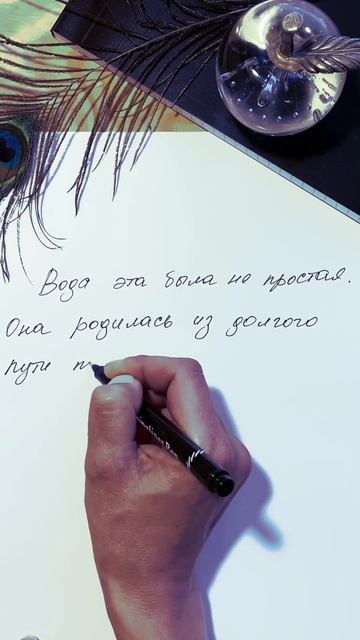 Вода эта была не простая.
Она родилась из долгого
пути п